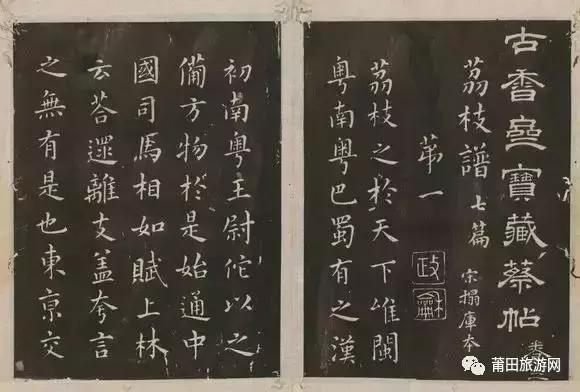 古香齋寶藏蔡帖
荔枝譜 七篇 宋搨庫本
苐一
政龢
荔枝之於天下唯閩
粵南粵巴蜀有之漢
初南粵王尉佗以之
備方物於是始通中
國司馬相如賦上林
云荅遝離支盖夸言
之無有是也東京交
莆田旅游网